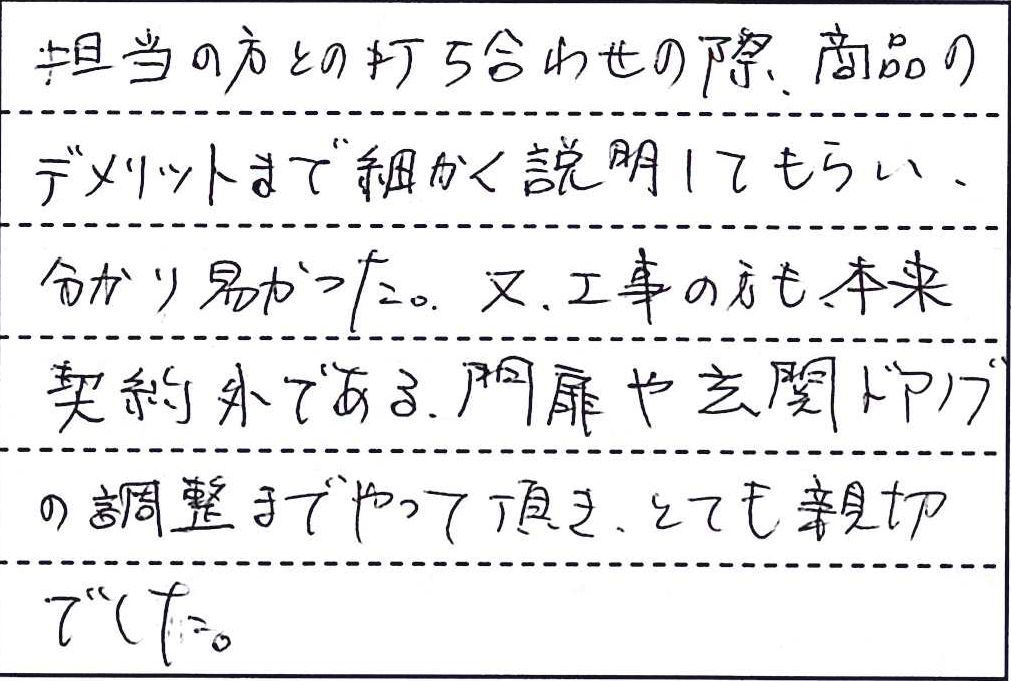 担当の方との打ち合わせの際、商品の
デメリットまで細かく説明してもらい、
分かり易かった。又、工事の方も、本来
契約外である、門扉や玄関ドアノブ
の調整までやって頂き、とても親切
でした。